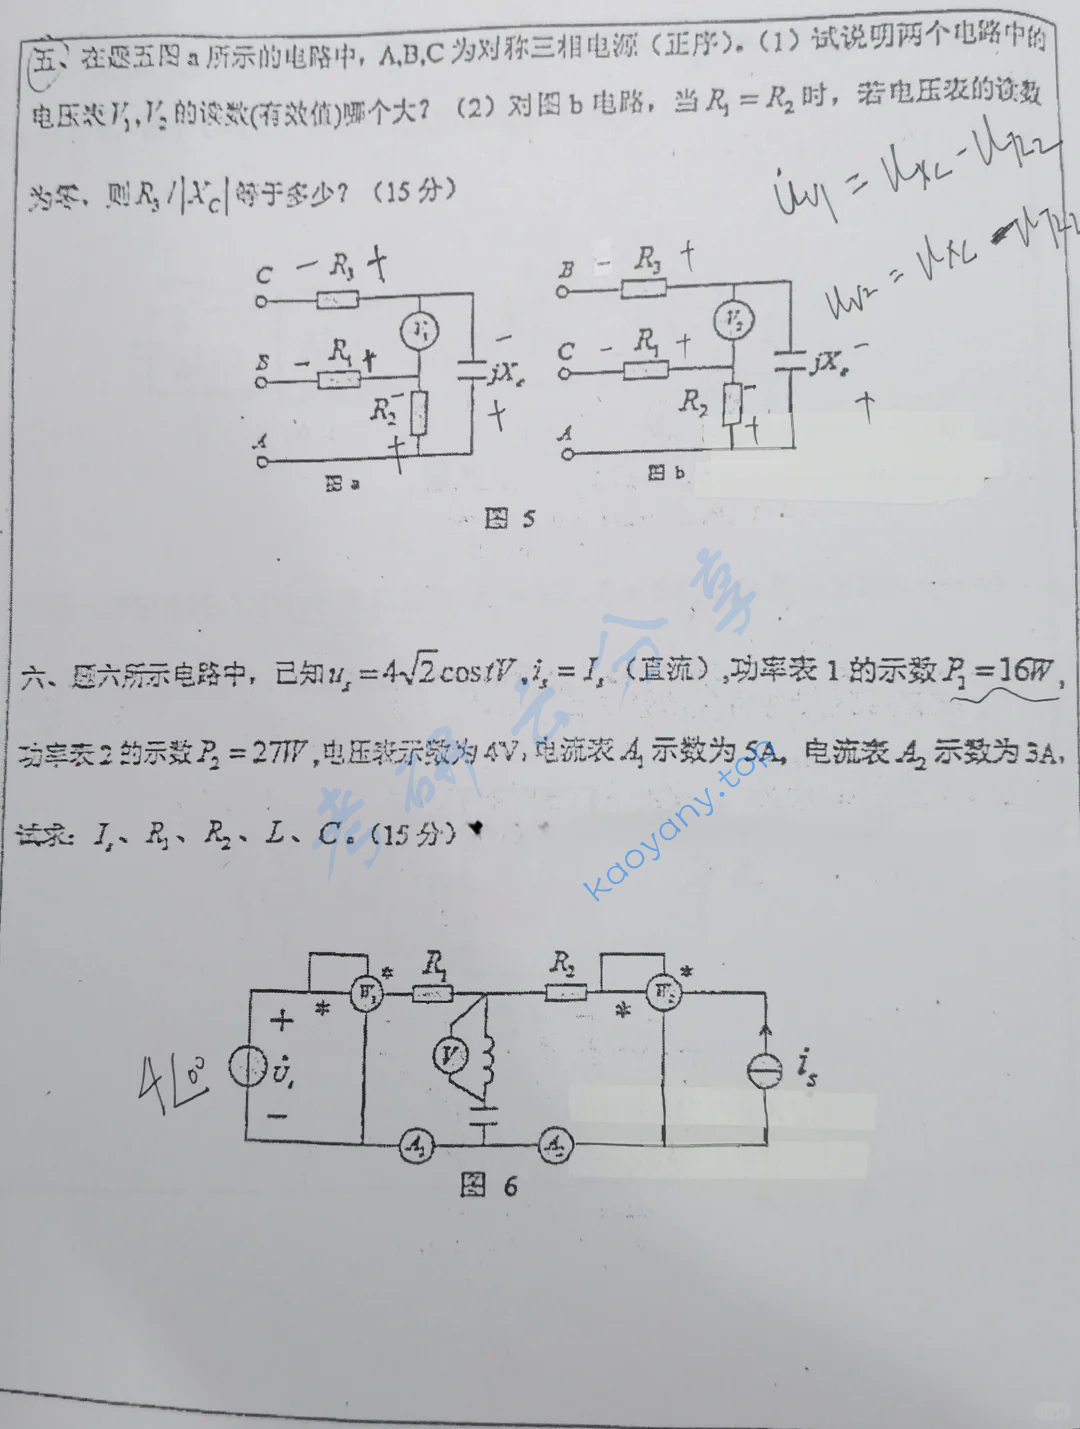 五、在题五图a所示的电路中，A,B,C为对称三相电源（正序）。（1）试说明两个电路中的
电压表V₁,V₂的读数(有效值)哪个大？（2）对图b电路，当R₁=R₂时，若电压表的读数
为零，则R₃/|X_C|等于多少？（15分）
U̇v1 = UXC - UR2
Uv2 = UXC - UR2
C - R₃ +
V₁
B - R₁ +
R₂ - +
jXc - +
A
图a
B - R₃ +
V₂
C - R₁ +
R₂ - +
jXc - +
A
图b
图 5
六、题六所示电路中，已知uₛ=4√2costV，iₛ=Iₛ（直流），功率表1的示数P₁=16W，
功率表2的示数P₂=27W，电压表示数为4V，电流表A₁示数为5A，电流表A₂示数为3A，
试求：Iₛ、R₁、R₂、L、C。（15分）
考研云分享
kaoyany.top
R₁ R₂
* W₁ * * W₂ *
4∠0° + U̇ₛ - V iₛ
A₁ A₂
图 6